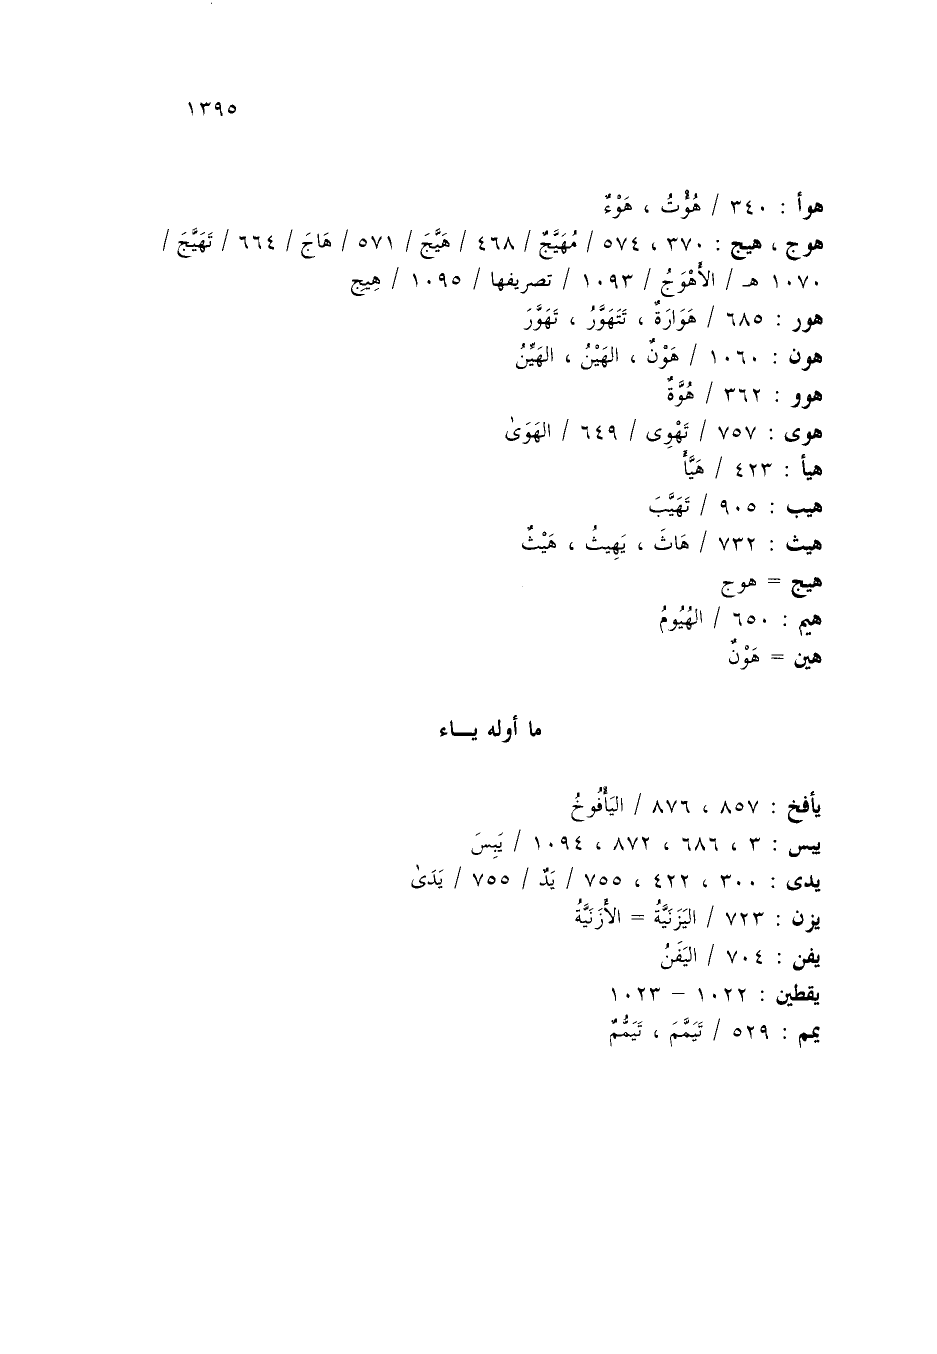 ١٣٩٥
هوأ : ٣٤٠ / هُؤْتُ ، هَوْءٌ
هوج ، هيج : ٣٧٠ ، ٥٧٤ / مُهَيَّجٌ / ٤٦٨ / هَيَّجَ / ٥٧١ / هَاجَ / ٦٦٤ / تَهَيَّجَ /
١٠٧٠ هـ / الأَهْوَجُ / ١٠٩٣ / تصريفها / ١٠٩٥ / هِيجِ
هور : ٦٨٥ / هَوَارَةٌ ، تَتَهَوَّرُ ، تَهَوَّرَ
هون : ١٠٦٠ / هَوْنٌ ، الهَيْنُ ، الهَيِّنُ
هوو : ٣٦٢ / هُوَّةٌ
هوى : ٧٥٧ / تَهْوِى / ٦٤٩ / الهَوَىٰ
هيأ : ٤٢٣ / هَيَّأَ
هيب : ٩٠٥ / تَهَيَّبَ
هيث : ٧٣٢ / هَاثَ ، يَهِيثُ ، هَيْثٌ
هيج = هوج
هيم : ٦٥٠ / الهُيُومُ
هين = هَوْنٌ
ما أوله يــاء
يأفخ : ٨٥٧ ، ٨٧٦ / اليَأْفُوخُ
يبس : ٣ ، ٦٨٦ ، ٨٧٢ ، ١٠٩٤ / يَبِسَ
يدى : ٣٠٠ ، ٤٢٢ ، ٧٥٥ / يَدٌ / ٧٥٥ / يَدَىٰ
يزن : ٧٢٣ / اليَزَنِيَّةُ = الأَزَنِيَّةُ
يفن : ٧٠٤ / اليَفَنُ
يقطين : ١٠٢٢ – ١٠٢٣
يمم : ٥٢٩ / تَيَمَّمَ ، تَيَمُّمٌ